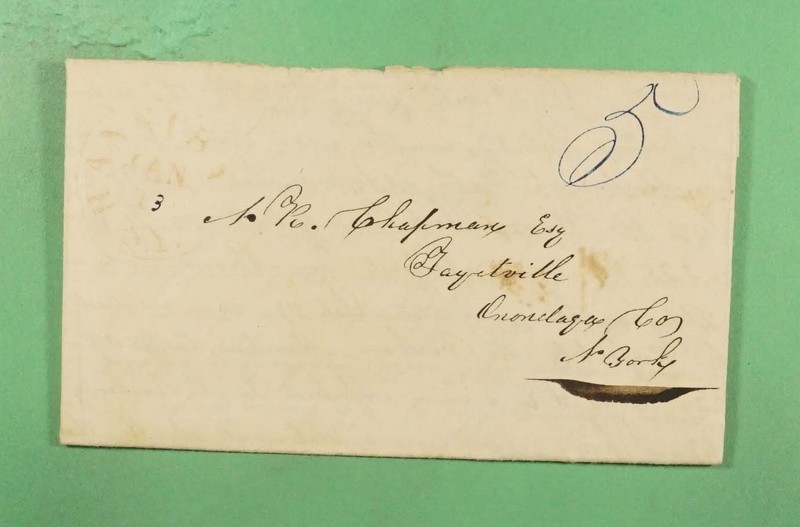 5
3
N. R. Chapman Esq
Fayetville
Onondaga Co
N York